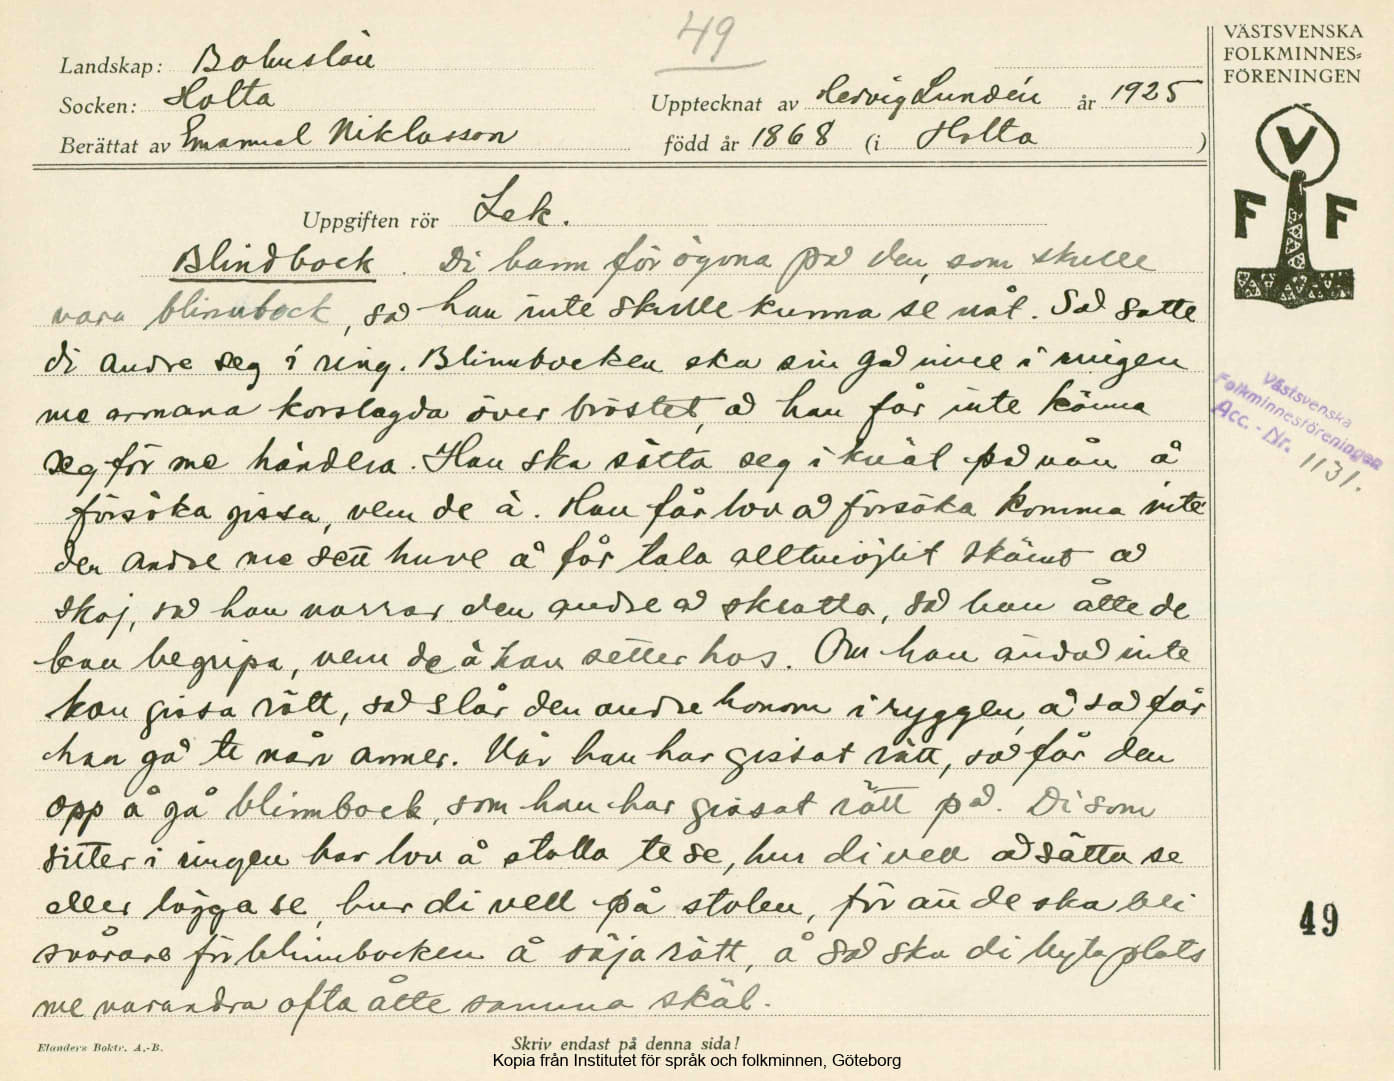 49
Landskap: Bohuslän
Socken: Holta
Upptecknat av Hervig Lundén år 1925
Berättat av Emanuel Niklasson
född år 1868 (i Holta )
VÄSTSVENSKA
FOLKMINNES-
FÖRENINGEN
V
F F
Uppgiften rör Lek.
Blindbock. Di bann för ögona på den, som skulle
vara blinnbock, så han inte skulle kunna se nåt. Så satte
di andre seg i ring. Blinnbocken ska sin gå inne i ringen
me armana korslagda över bröstet, å han får inte känna
seg för me händera. Han ska sätta seg i knät på nån å
försöka gissa, vem de ä. Han får lov å försöka komma inte
den andre me sett huve å får tala alltmöjlit skämt å
skoj, så han narrar den andre å skratta, så han åtte de
kan begripa, vem de ä han setter hos. Om han ändå inte
kan gissa rätt, så slår den andre honom i ryggen, å så får
han gå te nån annen. När han har gissat rätt, så får den
opp å gå blinnbock, som han har gissat rätt på. Di som
sitter i ringen har lov å stolla te se, hur di vell å sätta se
eller lägga se, hur di vell på stolen, för att de ska bli
svårare för blinnbocken å säja rätt, å så ska di byta plats
me varandra ofta åtte samma skäl.
Västsvenska
Folkminnesföreningen
Acc.-Nr. 1131.
49
Elanders Boktr. A.-B.
Skriv endast på denna sida!
Kopia från Institutet för språk och folkminnen, Göteborg